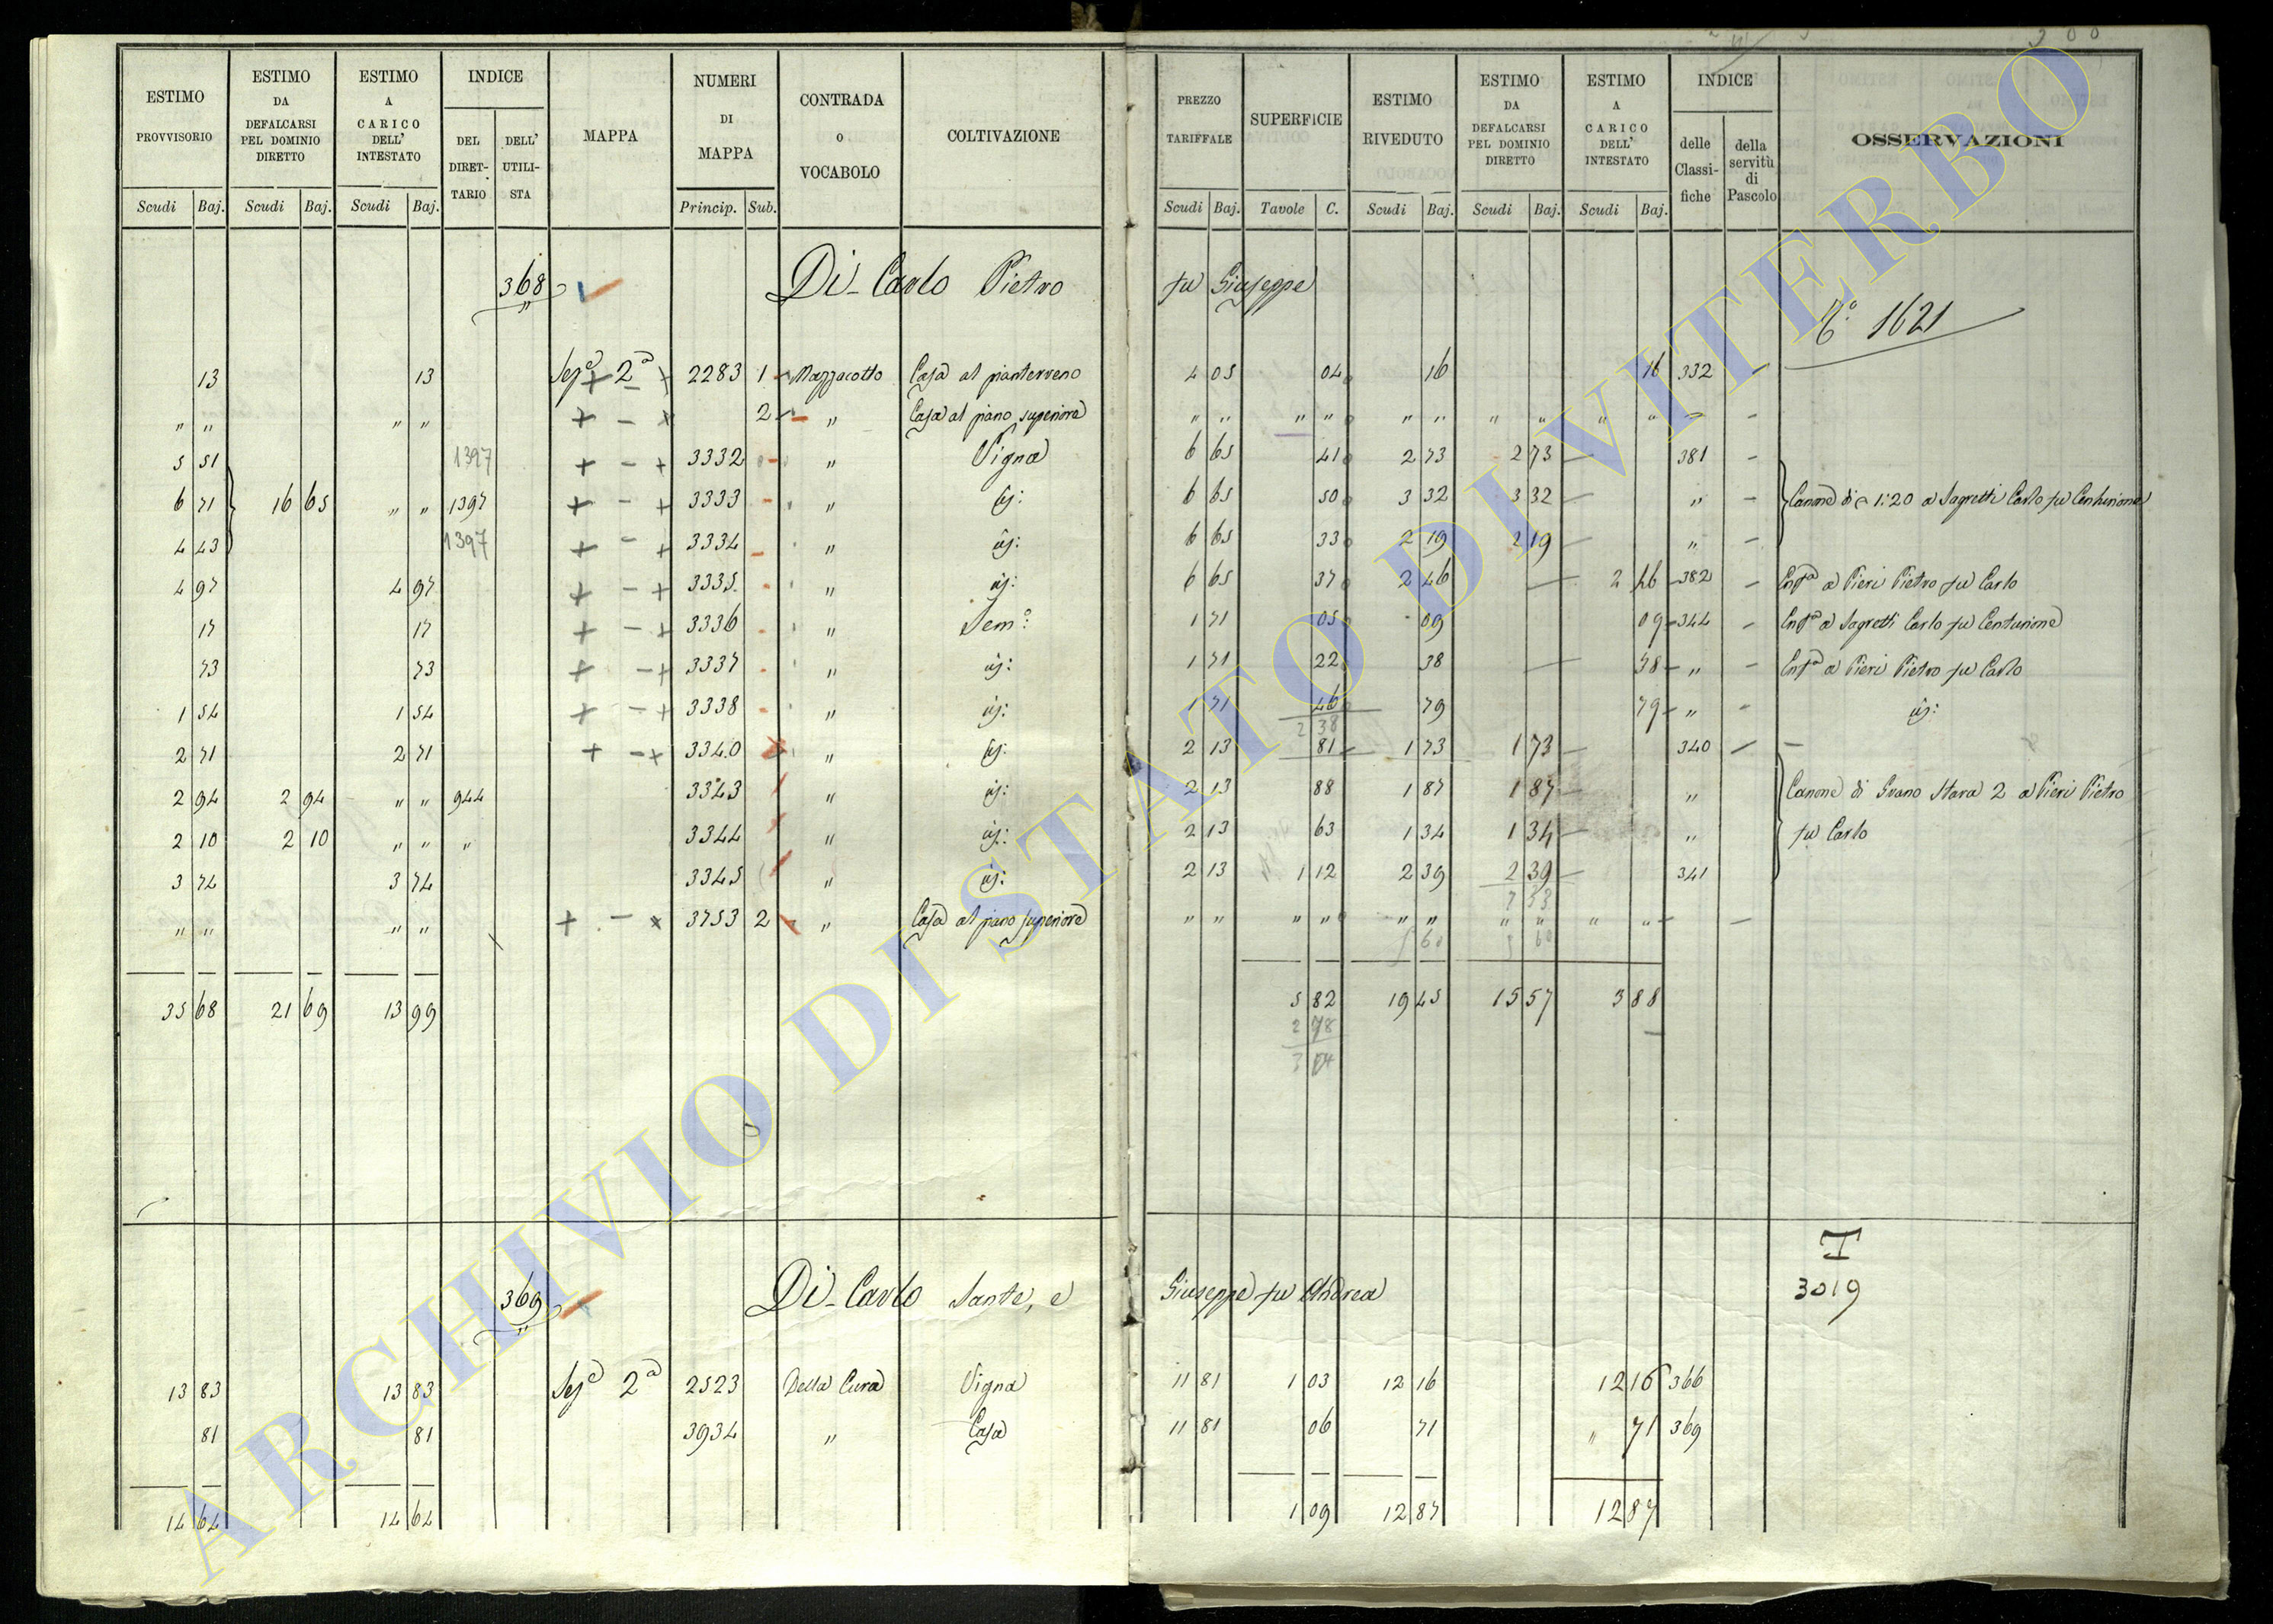 ESTIMO PROVVISORIO | ESTIMO DA DEFALCARSI PEL DOMINIO DIRETTO | ESTIMO A CARICO DELL' INTESTATO | INDICE | MAPPA | NUMERI DI MAPPA | CONTRADA O VOCABOLO | COLTIVAZIONE | PREZZO TARIFFALE | SUPERFICIE | ESTIMO RIVEDUTO | ESTIMO DA DEFALCARSI PEL DOMINIO DIRETTO | ESTIMO A CARICO DELL' INTESTATO | INDICE | OSSERVAZIONI
DEL DIRET-TARIO | DELL' UTILI-STA | delle Classi-fiche | della servitù di Pascolo
Scudi | Baj. | Scudi | Baj. | Scudi | Baj. | Princip. | Sub. | Scudi | Baj. | Tavole | C. | Scudi | Baj. | Scudi | Baj. | Scudi | Baj.
368 Di-Carlo Pietro fu Giuseppe
N.° 1621
13 | 13 | Sez.a 2a | 2283 | 1 | Mazzacotto | Casa al pianterreno | 4 05 | 04 | 16 | 16 | 332
" " | " " | 2 | " | Casa al piano superiore | " " | " " | " " | " " | " "
5 51 | 1397 | 3332 | " | Vigna | 6 65 | 41 | 2 73 | 2 73 | 381
6 71 | 16 65 | " " | 1397 | 3333 | " | id: | 6 65 | 50 | 3 32 | 3 32 | " | Canone di 1:20 a Sagretti Carlo fu Centurione
4 43 | 1397 | 3334 | " | id: | 6 65 | 33 | 2 19 | 2 19 | "
4 97 | 4 97 | 3335 | " | id: | 6 65 | 37 | 2 46 | 2 46 | 382 | Enfa a Pieri Pietro fu Carlo
17 | 17 | 3336 | " | Sem.o | 1 71 | 05 | 09 | 09 | 344 | Enfa a Sagretti Carlo fu Centurione
73 | 73 | 3337 | " | id: | 1 71 | 22 | 38 | 38 | " | Enfa a Pieri Pietro fu Carlo
1 54 | 1 54 | 3338 | " | id: | 1 71 | 46 | 79 | 79 | " | id:
2 38
2 71 | 2 71 | 3340 | " | id: | 2 13 | 81 | 1 73 | 1 73 | 340
2 94 | 2 94 | " " | 944 | 3343 | " | id: | 2 13 | 88 | 1 87 | 1 87 | " | Canone di Grano Stara 2 a Pieri Pietro
2 10 | 2 10 | " " | " | 3344 | " | id: | 2 13 | 63 | 1 34 | 1 34 | " | fu Carlo
3 74 | 3 74 | 3345 | " | id: | 2 13 | 1 12 | 2 39 | 2 39 | 341
7 33
" " | " " | 3753 | 2 | " | Casa al piano superiore | " " | " " | " " | " " | " "
5 60 | 5 60
35 68 | 21 69 | 13 99 | 5 82 | 19 45 | 15 57 | 3 88
2 78
3 04
369 Di-Carlo Sante, e Giuseppe fu Andrea
I
3019
13 83 | 13 83 | Sez.a 2a | 2523 | Della Cura | Vigna | 11 81 | 1 03 | 12 16 | 12 16 | 366
81 | 81 | 3934 | " | Casa | 11 81 | 06 | 71 | " 71 | 369
14 64 | 14 64 | 1 09 | 12 87 | 12 87
ARCHIVIO DI STATO DI VITERBO